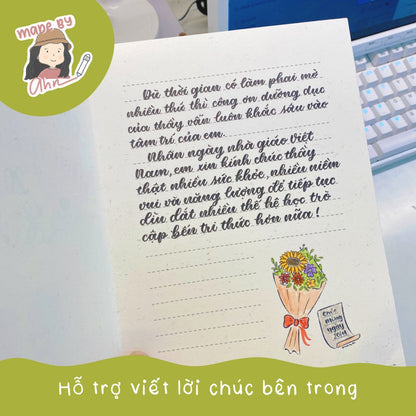 MADE BY
Ahn
Dù thời gian có làm phai mờ
nhiều thứ thì công ơn dưỡng dục
của thầy vẫn luôn khắc sâu vào
tâm trí của em.
Nhân ngày nhà giáo Việt
Nam, em xin kính chúc thầy
thật nhiều sức khỏe, nhiều niềm
vui và năng lượng để tiếp tục
dìu dắt nhiều thế hệ học trò
cập bến tri thức hơn nữa!
Chúc
mừng
ngày
20/11
Hỗ trợ viết lời chúc bên trong